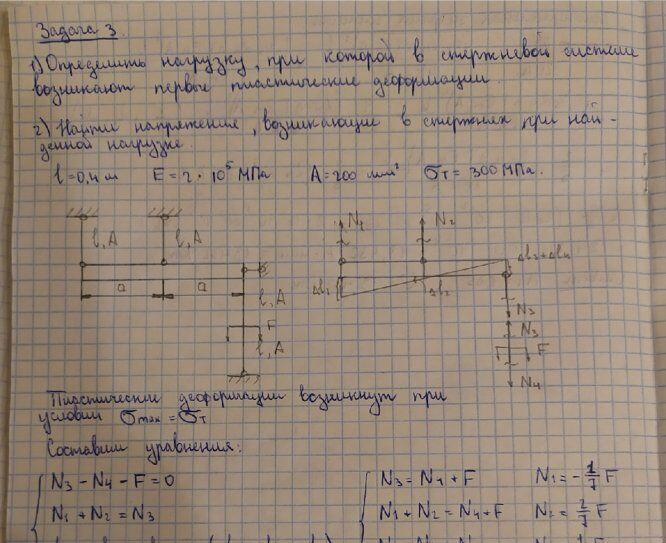 Задача 3.
1) Определить нагрузку, при которой в стержневой системе
возникают первые пластические деформации.
2) Найти напряжения, возникающие в стержнях при най-
денной нагрузке.
l=0,4 м E = 2·10⁵ МПа A=200 мм² σт = 300 МПа.
l, A
l, A
a
a
l, A
F
l, A
N₁
N₂
Δl₁
Δl₂
Δl₃+Δl₄
N₃
N₃
F
N₄
Пластические деформации возникнут при
условии σmax = σт
Составим уравнения:
N₃ - N₄ - F = 0
N₁ + N₂ = N₃
N₃ = N₄ + F
N₁ + N₂ = N₄ + F
N₁ = - 1/7 F
N₂ = 2/7 F